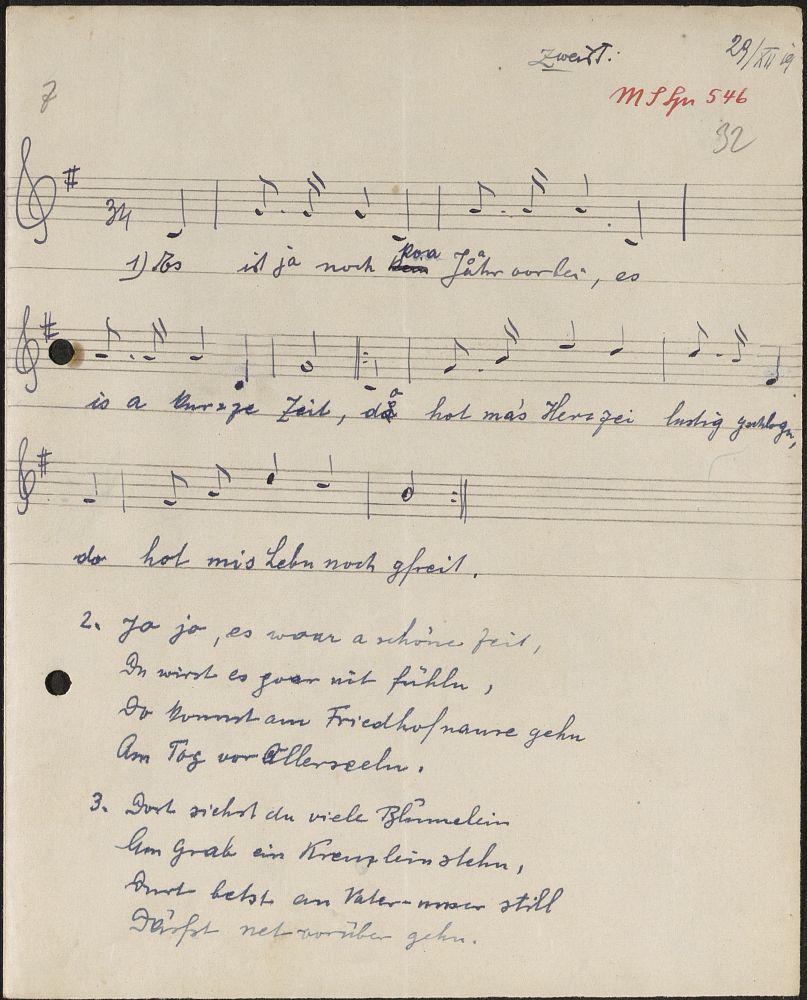 Zweist:
29/XII 19
7
M S Gu 546
32
3/4
1) Es ist ja noch koa Jåhr vorbei, es
is a kurze Zeit, då hot ma's Herzei lustig gschlogn,
do hot mis Lebn noch gfreit.
2. Jo jo, es woar a schöne Zeit,
Du wirst es goar nit fühln,
Do kommst am Friedhof naure gehn
Am Tog vor Allerseeln.
3. Dort siehst du viele Blümelein
Am Grab ein Kreuzlein stehn,
Durt betst an Vater-unser still
Därfst net vorüber gehn.